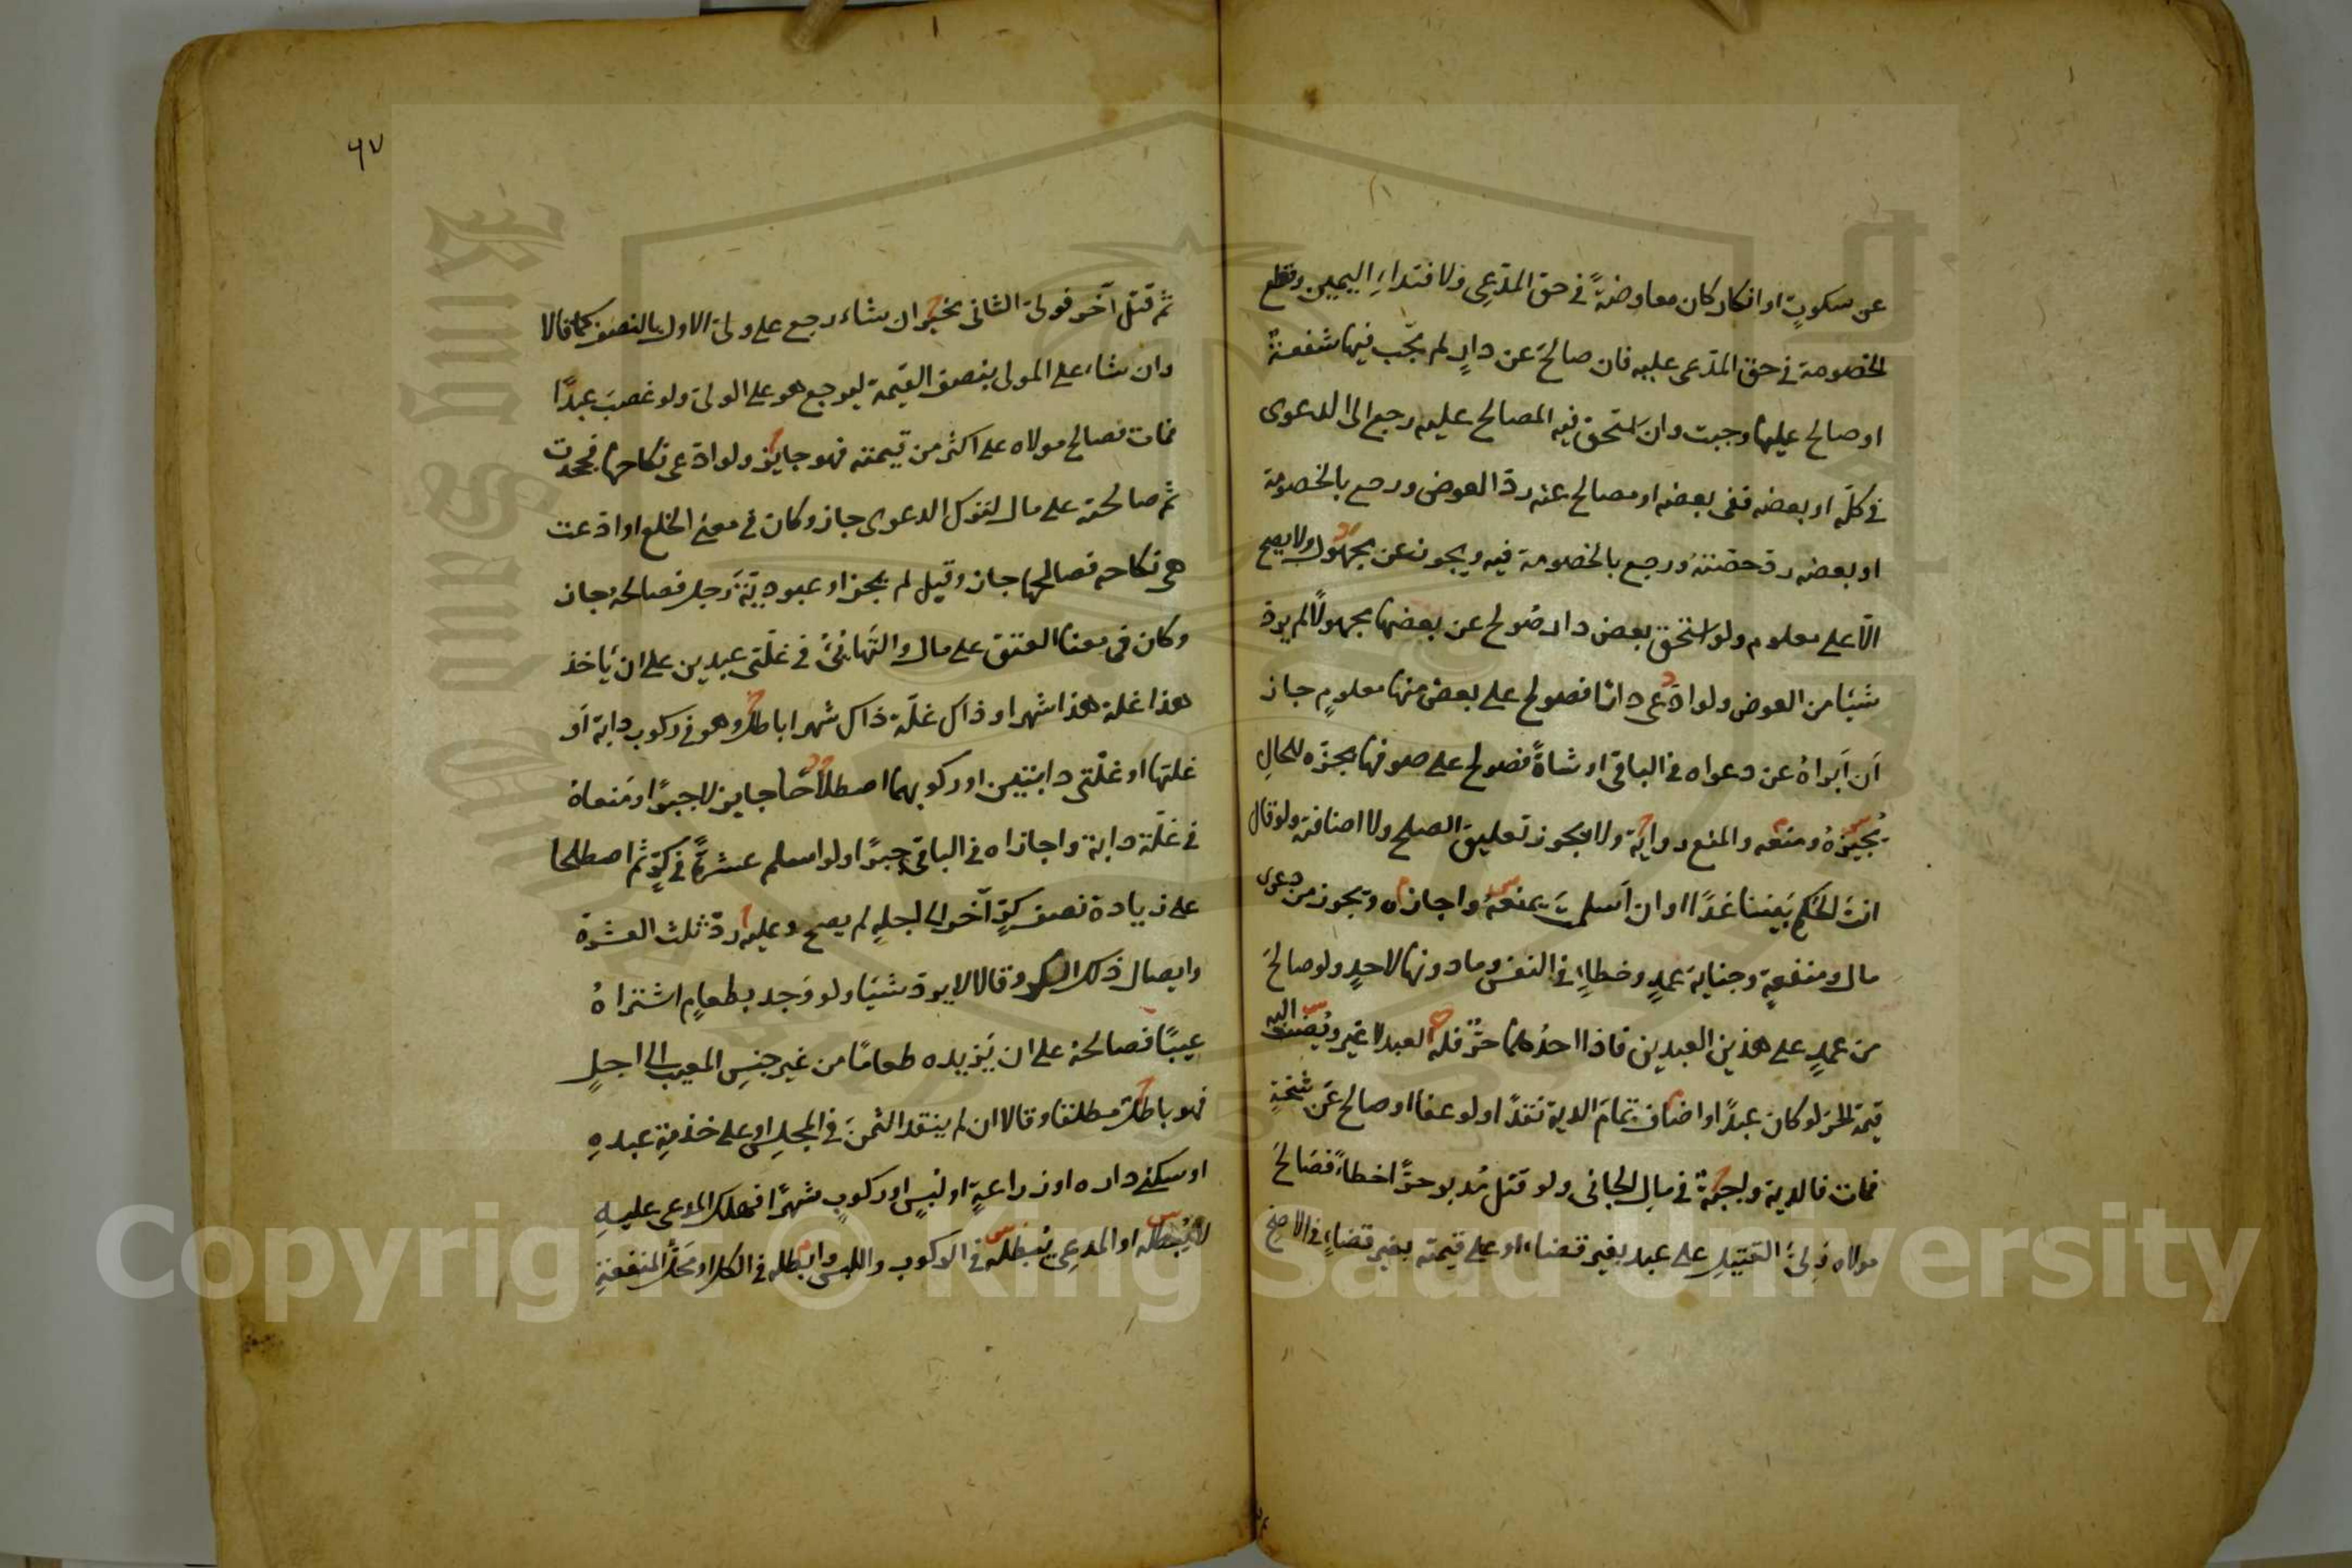 عن سكوتٍ او انكار كان معاوضةً في حق المدّعِى ولافتداءِ اليمين وقطع
الخصومة في حق المدّعى عليه فان صالحَ عن دارٍ لم تجب فيها شفعةٌ
او صالح عليها وجبت وان استحق فيه المصالح عليه رجع الى الدعوى
في كلّه او بعضه ففى بعضه او مصالح عنه ردّ العوض ورجع بالخصومة
او بعضه ردّ حصّتهُ ورجع بالخصومة فيه ويجوز عن مجهول ولا يصح
الّا على معلوم ولو استحق بعض دار صُولح عن بعضها مجهولًا لم يردّ
شيئا من العوض ولو ادّعى دارًا فصولح على بعض منها معلومٍ جاز
اَن اَبراهُ عن دعواه في الباقى او شاةً فصولح على صوفها يجزّه للحالِ
يُجيزهُ ومنعه والمنع رواية ولا يجوز تعليق الصلح ولا اضافته ولو قال
انت الحَكم بَيننا غدًا او ان اَسلمتَ يمنعهُ واجازاه ويجوز من دعوى
مال ومنفعةٍ وجناية عمدٍ وخطاءٍ في النفس وما دونها لا حدٍ ولو صالحَ
من عمدٍ على هذين العبدين فاذا احدُهما حرٌّ فله العبد لا غير ويُضيف اليه
قيمة الحر لو كان عبدًا او اضاف تمامَ الدية نقدًا ولو عفا او صالح عَن شجّةٍ
فمات فالدية واجبةٌ في مال الجانى ولو قتل مُدبر حرًّا خطاءً فصَالحَ
مولاه وَلىُّ القتيلِ على عبد بغير قضاء او على قيمته بغير قضاءٍ في الاصح
٩٧
ثم قتل آخر فولىّ الثانى مخيّر ان شاء رجع على ولىّ الاول بالنصف كما قالا
وان شاء على المولى بنصف القيمة ليرجع هو على الولىّ ولو غصبَ عبدًا
فمات فصالح مولاه على اكثر من قيمته فهو جايز ولو ادّعى نكاحها فجحدت
ثم صالحته على مال لترك الدعوى جاز وكان في معنى الخلع او ادّعت
هى نكاحه فصالحها جاز وقيل لم يجز او عبوديّة رَجل فصالحهُ جاز
وكان في معنا العتق على مال والتَهائِىُ في غلّتى عبدين على ان يَاخذ
هذا غلة هذا شهرا وذاك غلّة ذاك شهرا باطل وهو في ركوب دابة اَو
غلتها او غلّتى دابتين او ركوبهما اصطلاحًا جايز لا جبرًا ومَنعاهُ
في غلّة دابة واجازاه في الباقى جبرًا ولو اسلم عشرةً في كرٍّ ثم اصطلحا
على زيادة نصف كرٍّ آخر الى اجلهِ لم يصح وعليه ردّ ثلث العشرة
وايصال ذلك الكر وقالا لا يردّ شيئا ولو وَجد بطعامٍ اشتراهُ
عيبًا فصالحه على ان يَزيده طعامًا من غير جنسِ المعيب الى اجلٍ
فهو باطل مطلقا وقالا ان لم ينقد الثمنَ في المجلسِ او على خذمةِ عبدهِ
او سكنى داره او زراعةٍ او لبسٍ او ركوبٍ شهرًا فهلك المدعى عليهِ
لا يُبطله او المدعِى يُبطله في الركوب واللبس وابطله في الكل او محَلُّ المنفعةِ